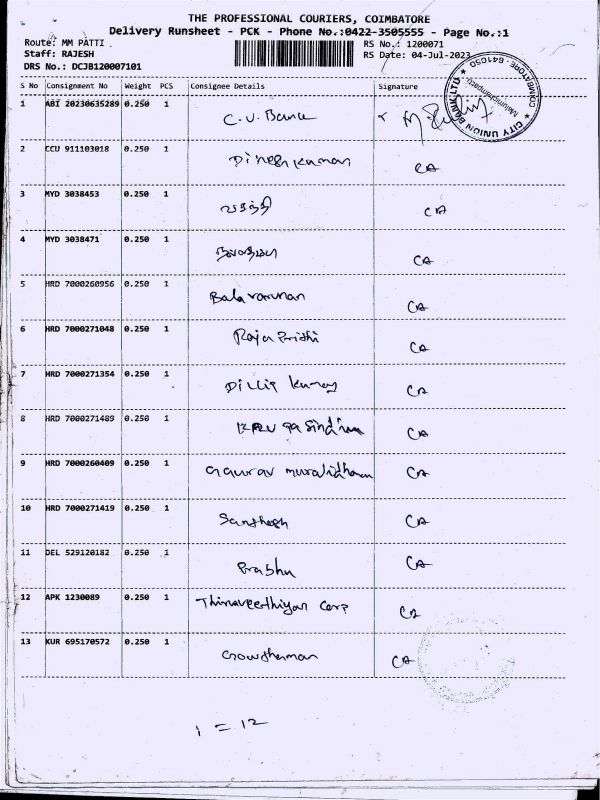 THE PROFESSIONAL COURIERS, COIMBATORE
Delivery Runsheet - PCK - Phone No.:0422-3505555 - Page No.:1
Route: MM PATTI
RS No.: 1200071
Staff: RAJESH
RS Date: 04-Jul-2023
DRS No.: DCJB120007101
CITY UNION BANK LTD
COIMBATORE - 641050
S No Consignment No Weight PCS Consignee Details Signature
1 ABI 20230635289 0.250 1 C.U. Bank
2 CCU 911103018 0.250 1 Dinesh Kumar CA
3 MYD 3038453 0.250 1 வசந்தி CA
4 MYD 3038471 0.250 1 CA
5 HRD 7000260956 0.250 1 Bala varunan CA
6 HRD 7000271048 0.250 1 Raja Prithi CA
7 HRD 7000271354 0.250 1 Dillip Kumar CA
8 HRD 7000271489 0.250 1 CA
9 HRD 7000260409 0.250 1 Gaurav muralidharan CA
10 HRD 7000271419 0.250 1 Santhosh CA
11 DEL 529120182 0.250 1 Prabhu CA
12 APK 1230089 0.250 1 Corp CA
13 KUR 695170572 0.250 1 Gowthaman CA
1 = 12